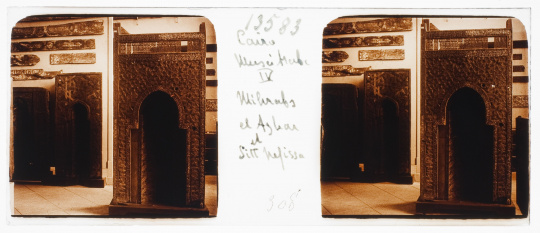 13583
Cairo
Musée Arabe
IV
Mihrabs
el Azhar
et
Sitt Nefissa
308